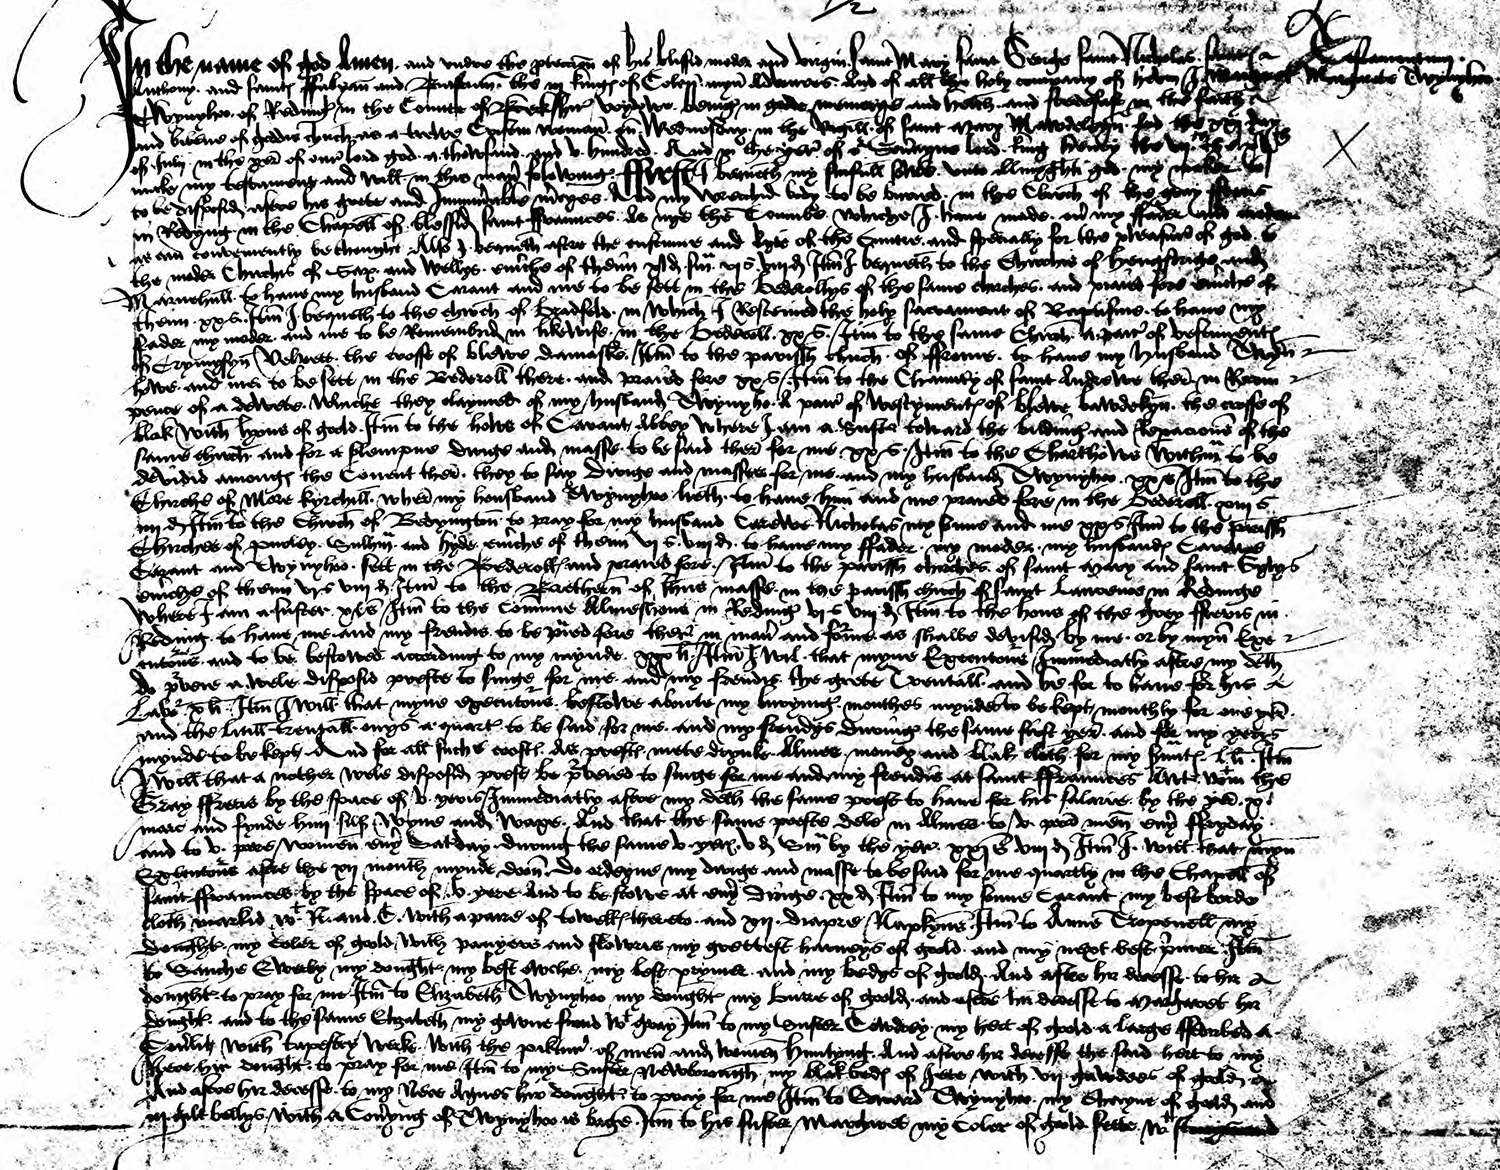 In the name of god Amen. and undre the proteccion of his blissid moder and virgin saint Mary saint George saint Nicholas saint
Anthony. and saints ffabyan and Sebastian. the iij kings of Coleyn myn Advowres. And of all the holy company of hevin I Margaret
Twynyho. of Reding in the Countie of Berkshir wydowe. being in gode memorye and helth. and stedefast in the faith
and beleve of goddis church as a trewe Cristin woman. on Wednesday in the Vigill of saint Mary Mawdelyn. And the xxj day
of July. in the yere of our lord god a thowsand. and v hundred. And in the yere of Soverayne lord. king Henry the vij th
make my testament and will in this maner folowing. ffirst I bequeth my sinfull sowle unto allmighti god my maker
to be disposid aftre his grete and Innumerable mercyes. And my wrechid body to be buried in the Church of the gray ffreres
in Redyng in the Chapell of blessid saint ffraunces. As nye the Tombe whiche I have made on my ffader and moder
as can conveniently be thought. Also I bequeth aftre the custume and lyve of the Cuntre. and specially for the pleasure of god. to
the moder Chirchis of Sar. and Wellys. eniche of them Itm I bequeth to the Chirchis of Hengstrige and
Marnehull. to have my husband Carant and me to be sett in the bederollys of the same chirches. and praied fore eniche of
them. xx s. Itm I bequeth to the chirch of Bradfeld. in which I Resceived the holy sacrament of Baptisme. to have my
fader my moder. and me to be Remembrid in likewise. in the Bederoll. xx s. Itm to the same Chirch a paire of vestments
of Crymysyn velvett. the crosse of blewe damaske. Itm to the parissh chirch. of ffrome. to have my husband Twyny
howe. and me. to be sett in the Bederoll there. and praied fore xx s. Itm to the Chauntry of saint Andrewe there in Recom
pence of a dewete. whiche they claymed of my husband Twynyho. A paire of vestyments of blewe bawdekyn. the crosse of
blak with lyons of goold. Itm to the hows of Abbey where I am a Suster toward the bilding and Reparacions of the
same chirch and for a solempne dirige and masse. to be said there for me xx s. Itm to the Charthows Witham to be
devidid amongs the Covent there. they to say Dirige and masses for me. and my husband Twynyhoo. xx s. Itm to the
Chirche of More Kyrchill. where my housband Twynyhoo lieth. to have him and me praied fore in the Bederoll. xiij s
iiij d. Itm to the Chirch of Bedyngton to pray for my husband Carewe Nicholas my sonne and me xx s. Itm to the parissh
Chirches of Purley. Sulhm. and Hyde. eniche of them vj s. viij d. to have my ffader. my moder. my husbands Carewe
Carant and Twynyhoo. sett in the Bederoll and praied fore. Itm to the parissh chirches of saint Mary and saint Gylys
eniche of them vj s viij d. Itm to the Bretherin of Jhus masse. in the parissh chirch of saint Laurence in Redinge
where I am a suster xx s. Itm to the Comune Almeshous in Reding vj s viij d. Itm to the hous of the Grey ffreris in
Reding to have me. and my frendis. to be praied fore there in maner and forme as shalbe devisid by me. or by myn Exe
cutours. and to be bestowed according to my mynde. xx li. Itm I wil. that myne Executours Immediatly aftre my deth
do provere a wele disposid preste to singe for me. and my frendis. the grete Trentall. and he for to have for his
Labor x li. Itm I will that myne executours. bestowe aboute my burying. monthes myndes to be kept monthly for one yere.
and the litill trentall every a quarter. to be said for me. and my frendys during the same first yere. and for my yeres
mynde to be kept. And for all suche costs. As prests. mete drynke. Almes. money and blak cloth for my Itm
I will that a nother wele disposid prest be provered to singe for me and my frendis at saint ffraunces Awter within the
Gray ffreris by the space of v. yeris Immediatly aftre my deth the same prest to have for his salarie. by the yere. x
marc and fynde him self Wyne and Waxe. And that the same preste dele in Almes. to v. pore men every ffryday
and to v. pore women every Satday during the same v. yere. v d. Sum by the yere. xxj s viij d. Itm I will that myn
Executours aftre the xij month mynde doon. do ordeyne my dirige and masse to be said for me quarterly in the Chapell of
saint ffraunces by the space of v. yere And to bestowe at every dirige xx d. Itm to my sonne Carant my best bordo
cloth markid wt R. and C. with a paire of towells therto. and xij. diapre Napkyns Itm to Anne Tropenell my
doughter. my Coler of goold with pansyes and flowris my grettest harneys of goold. and my next best primer. Itm
to Sanche Ewerby my doughter. my best ouche. my best prymer. and my bedys of goold. And aftre hir decesse to hir
doughter. to pray for me. Itm to Elizabeth Twynyhoo my doughter my of goold. and aftre hir decesse to Margaret hir
doughter. and to the same Elizabeth my gowne furrid wt gray. Itm to my Suster Cowdrey my hert of goold a large ffetherbed a
Coverlit with tapestry werke. with the pikture of men and women huntyng. And aftre hir decesse the said hert to my
Nece hir doughter. to pray for me. Itm to my Suster Newborough. my blak beds of Jete with vij gawdees of goold
And aftre hir decesse. to my Nece Agnes hir doughter to pray for me. Itm to Edward Twynyho. my Chayne of goold and
iij gilt bollys. with a Covering of Twynyhoo is bage. Itm to his suster Margaret my Coler of goold sette wt